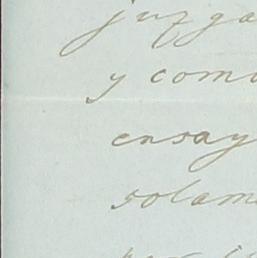 juzga
y com
ensay
solam